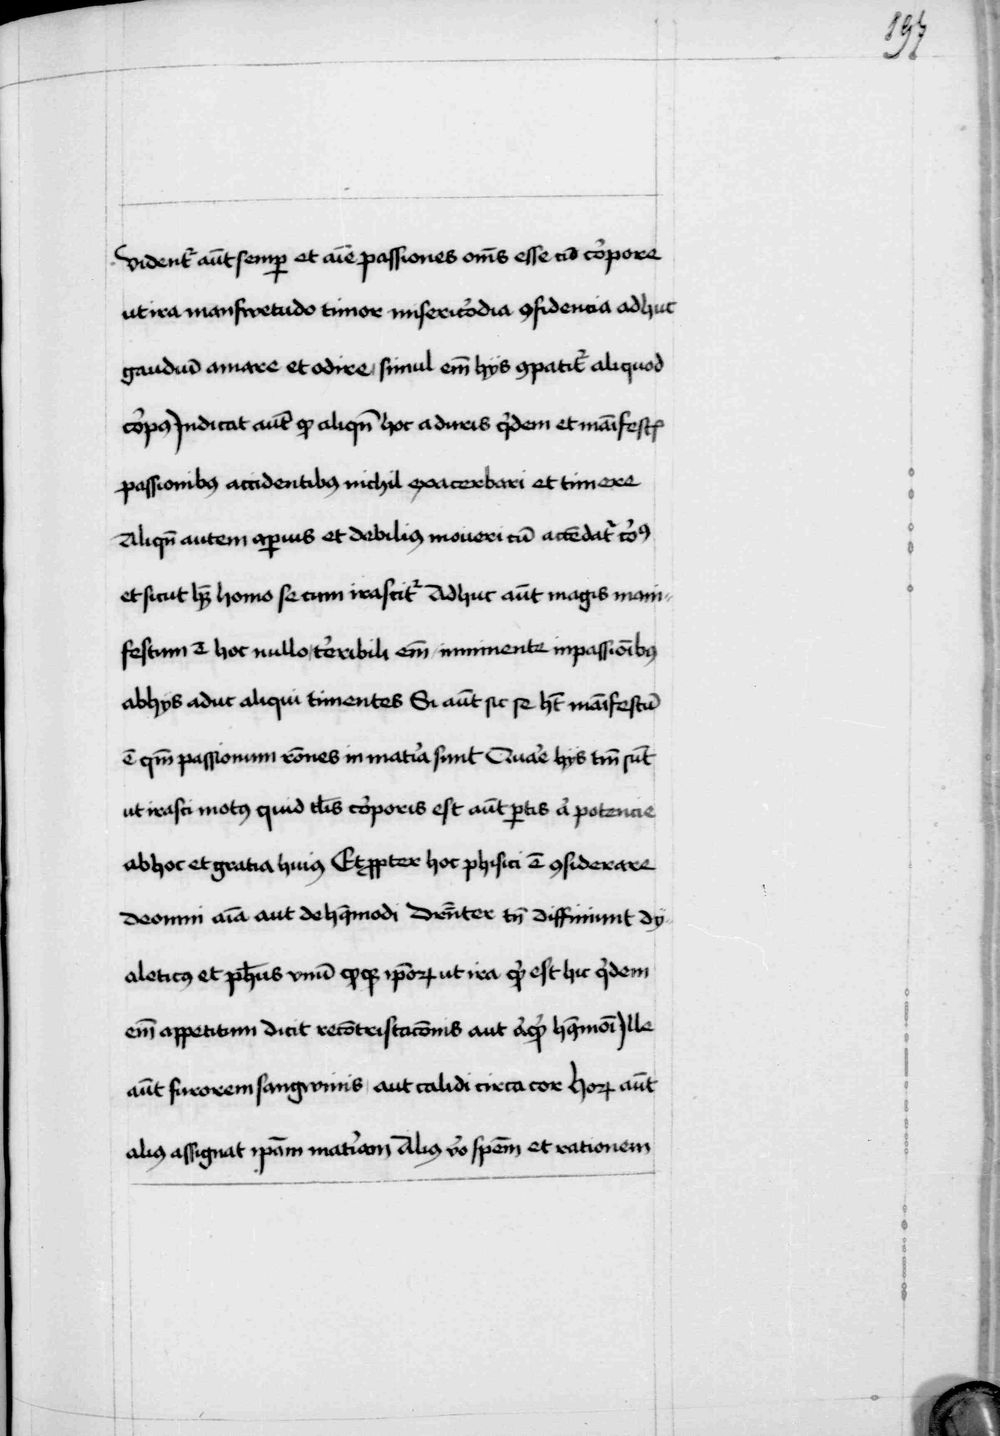 197
Vident᷑ aūt semꝑ et aīe passiones om̄s esse cū cor̄pore
ut ira manswetudo timor misericor̄dia ꝯfidencia adhuc
gaudiū amare et odire simul em̄ hys ꝯpatit᷑ aliquod
cor̄pꝰ Indicat aūt ꝙ aliqn̄ hoc a duris q̇dem et māifestꝭ
passionibꝰ accidentibꝰ nichil exacerbari et timere
Aliqn̄ autem a ꝑuis et debiliꝰ moueri cū accēdat᷑ cor̄ꝰ
et sicut hꝫ homo se cum irascit᷑ Adhuc aūt magis mani-
festum ē hoc nullo ter̄ibili em̄ imminente in passiōibꝰ
ab hys aduc aliqui timentes Si aūt sic se hn̄t māifestū
ē qm̄ passionum rōnes in mat̄ia sunt Quar̄e hys tm̄ sūt
ut irasci motꝰ quid tl̄is cor̄poris est aūt ꝑtis a᷑ potencie
ab hoc et gratia huiꝰ Et ꝓpter hoc phisici ē ꝯsiderare
de omni aīa aut de hꝰmodi Drn̄ter tn̄ diffiniunt dy-
aleticꝰ et ph̄us vnū qͦꝙ ip̄oꝝ ut ira qͥd est hic q̇dem
em̄ appetitum dicit recōtristacōnis aut aͥqͥd hꝰmōi Ille
aūt furorem sangwinis aut calidi circa cor Hoꝝ aūt
aliꝰ assignat ip̄am mat̄iam Aliꝰ v̄o spēm et rationem